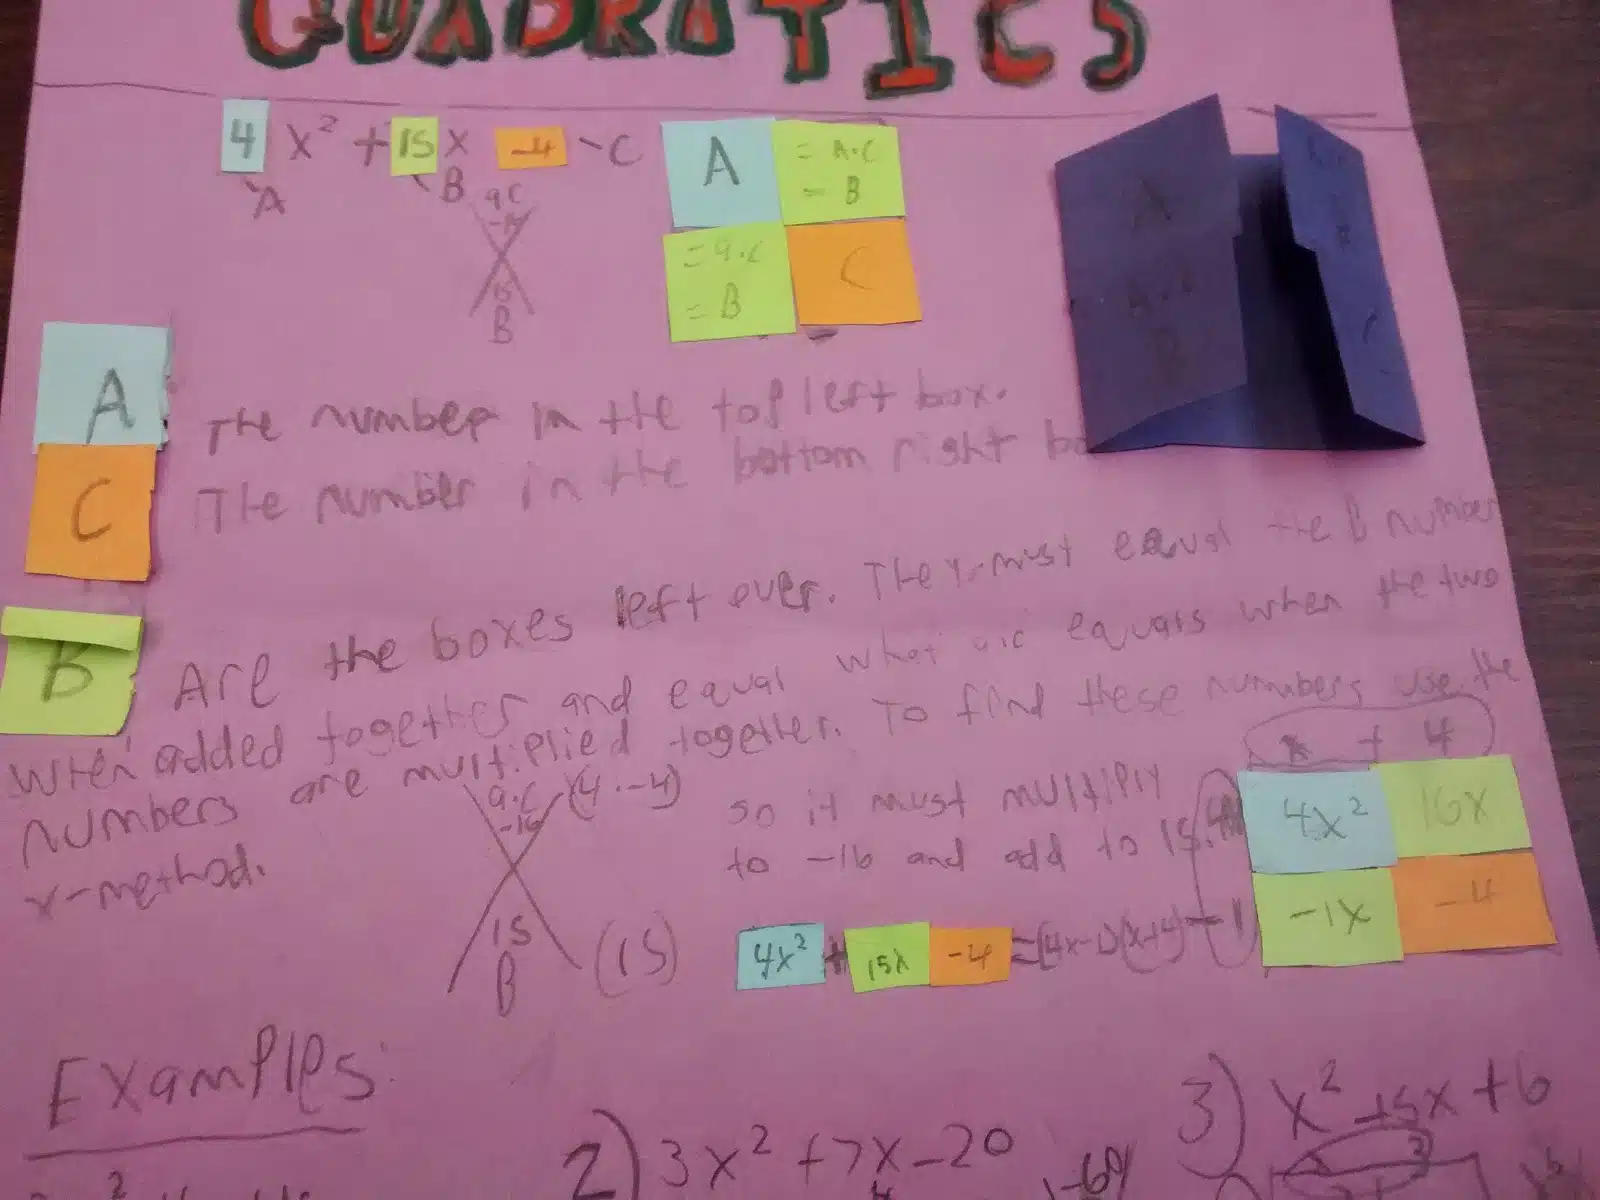 QUADRATICS
4 x² + 15 x -4 - C
A
B
a.c
-16
15
B
A
= A.C
= B
= a.c
= B
C
A
A The number in the top left box.
C The number in the bottom right
B Are the boxes left over. They must equal the B number
when added together and equal what a.c equals when the two
numbers are multiplied together. To find these numbers use the
x-method.
a.c (4.-4)
-16
15 (15)
B
so it must multiply
to -16 and add to 15.
x + 4
4x² 16x
-1x -4
-1
4x² + 15x -4 =(4x-1)(x+4)
Examples:
2) 3x² +7x-20
3) x² +5x +6